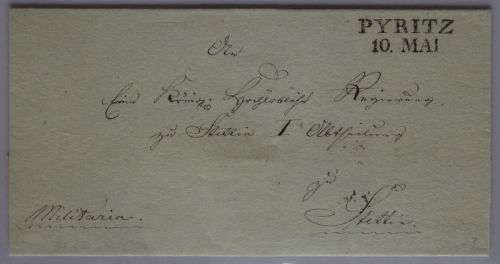 PYRITZ
10. MAI
An
Eine Königl: Hochlöbliche Regierung,
zu Stettin I Abtheilung
zu
Militaria.
Stettin.